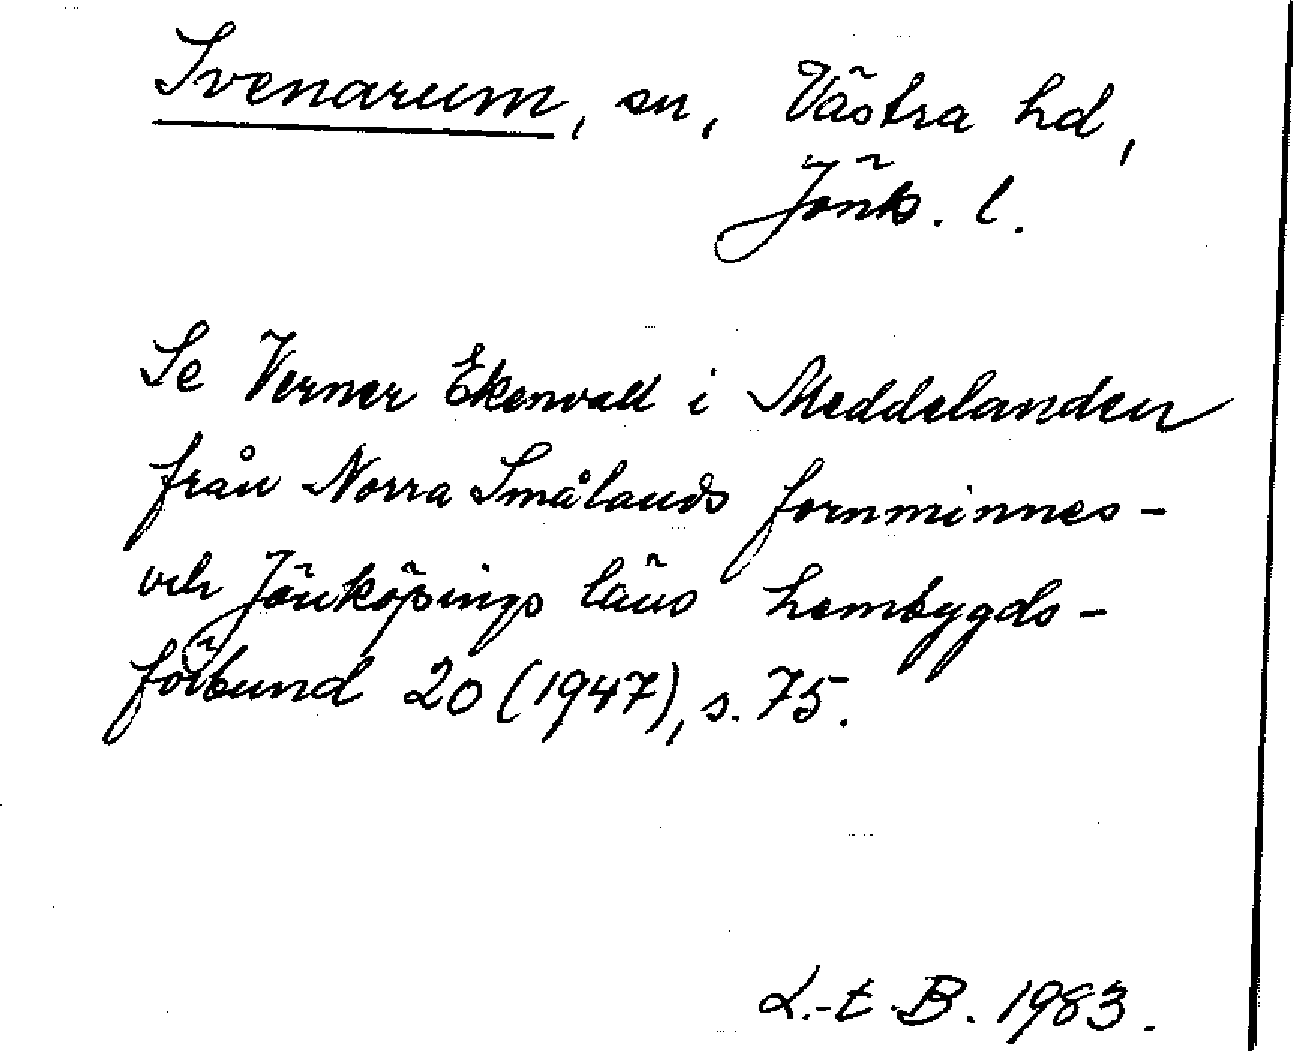 Svenarum, sn, Västra hd,
Jönk. l.
Se Verner Ekenvall i Meddelanden
från Norra Smålands fornminnes-
och Jönköpings läns hembygds-
förbund 20 (1947), s. 75.
L.-E. B. 1983.